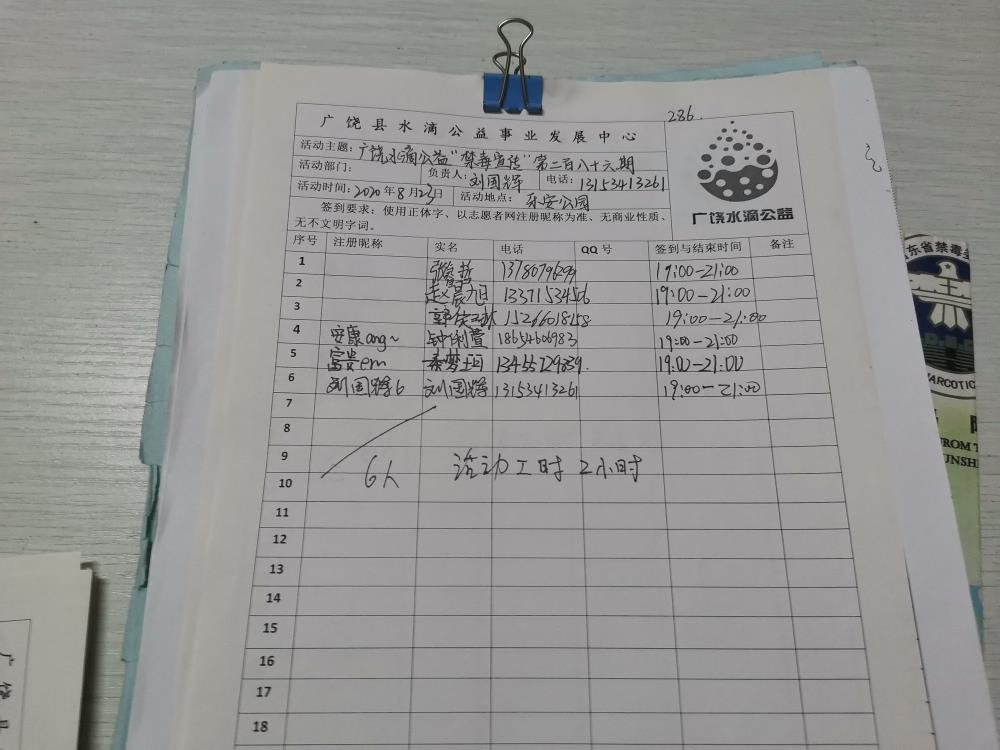 286.
广饶县水滴公益事业发展中心
活动主题：广饶水滴公益"禁毒宣传"第二百八十六期
活动部门： 负责人：刘国辉 电话：13153413261
活动时间：2020年8月23日 活动地点：乐安公园
签到要求：使用正体字、以志愿者网注册昵称为准、无商业性质、
无不文明字词。
广饶水滴公益
序号 注册昵称 实名 电话 QQ号 签到与结束时间 备注
1 19:00-21:00
2 赵晨旭 13371534506 19:00-21:00
3 15266018158 19:00-21:00
4 安康ang~ 钟俐萱 18654606983 19:00-21:00
5 富贵em 秦梦 13455729839. 19:00-21:00
6 刘国辉6 刘国辉 13153413261 19:00-21:00
7
8
9
10 6人 活动工时 2小时
11
12
13
14
15
16
17
18
东省禁毒
NARCOTIC
ROM
UNSH
广饶县